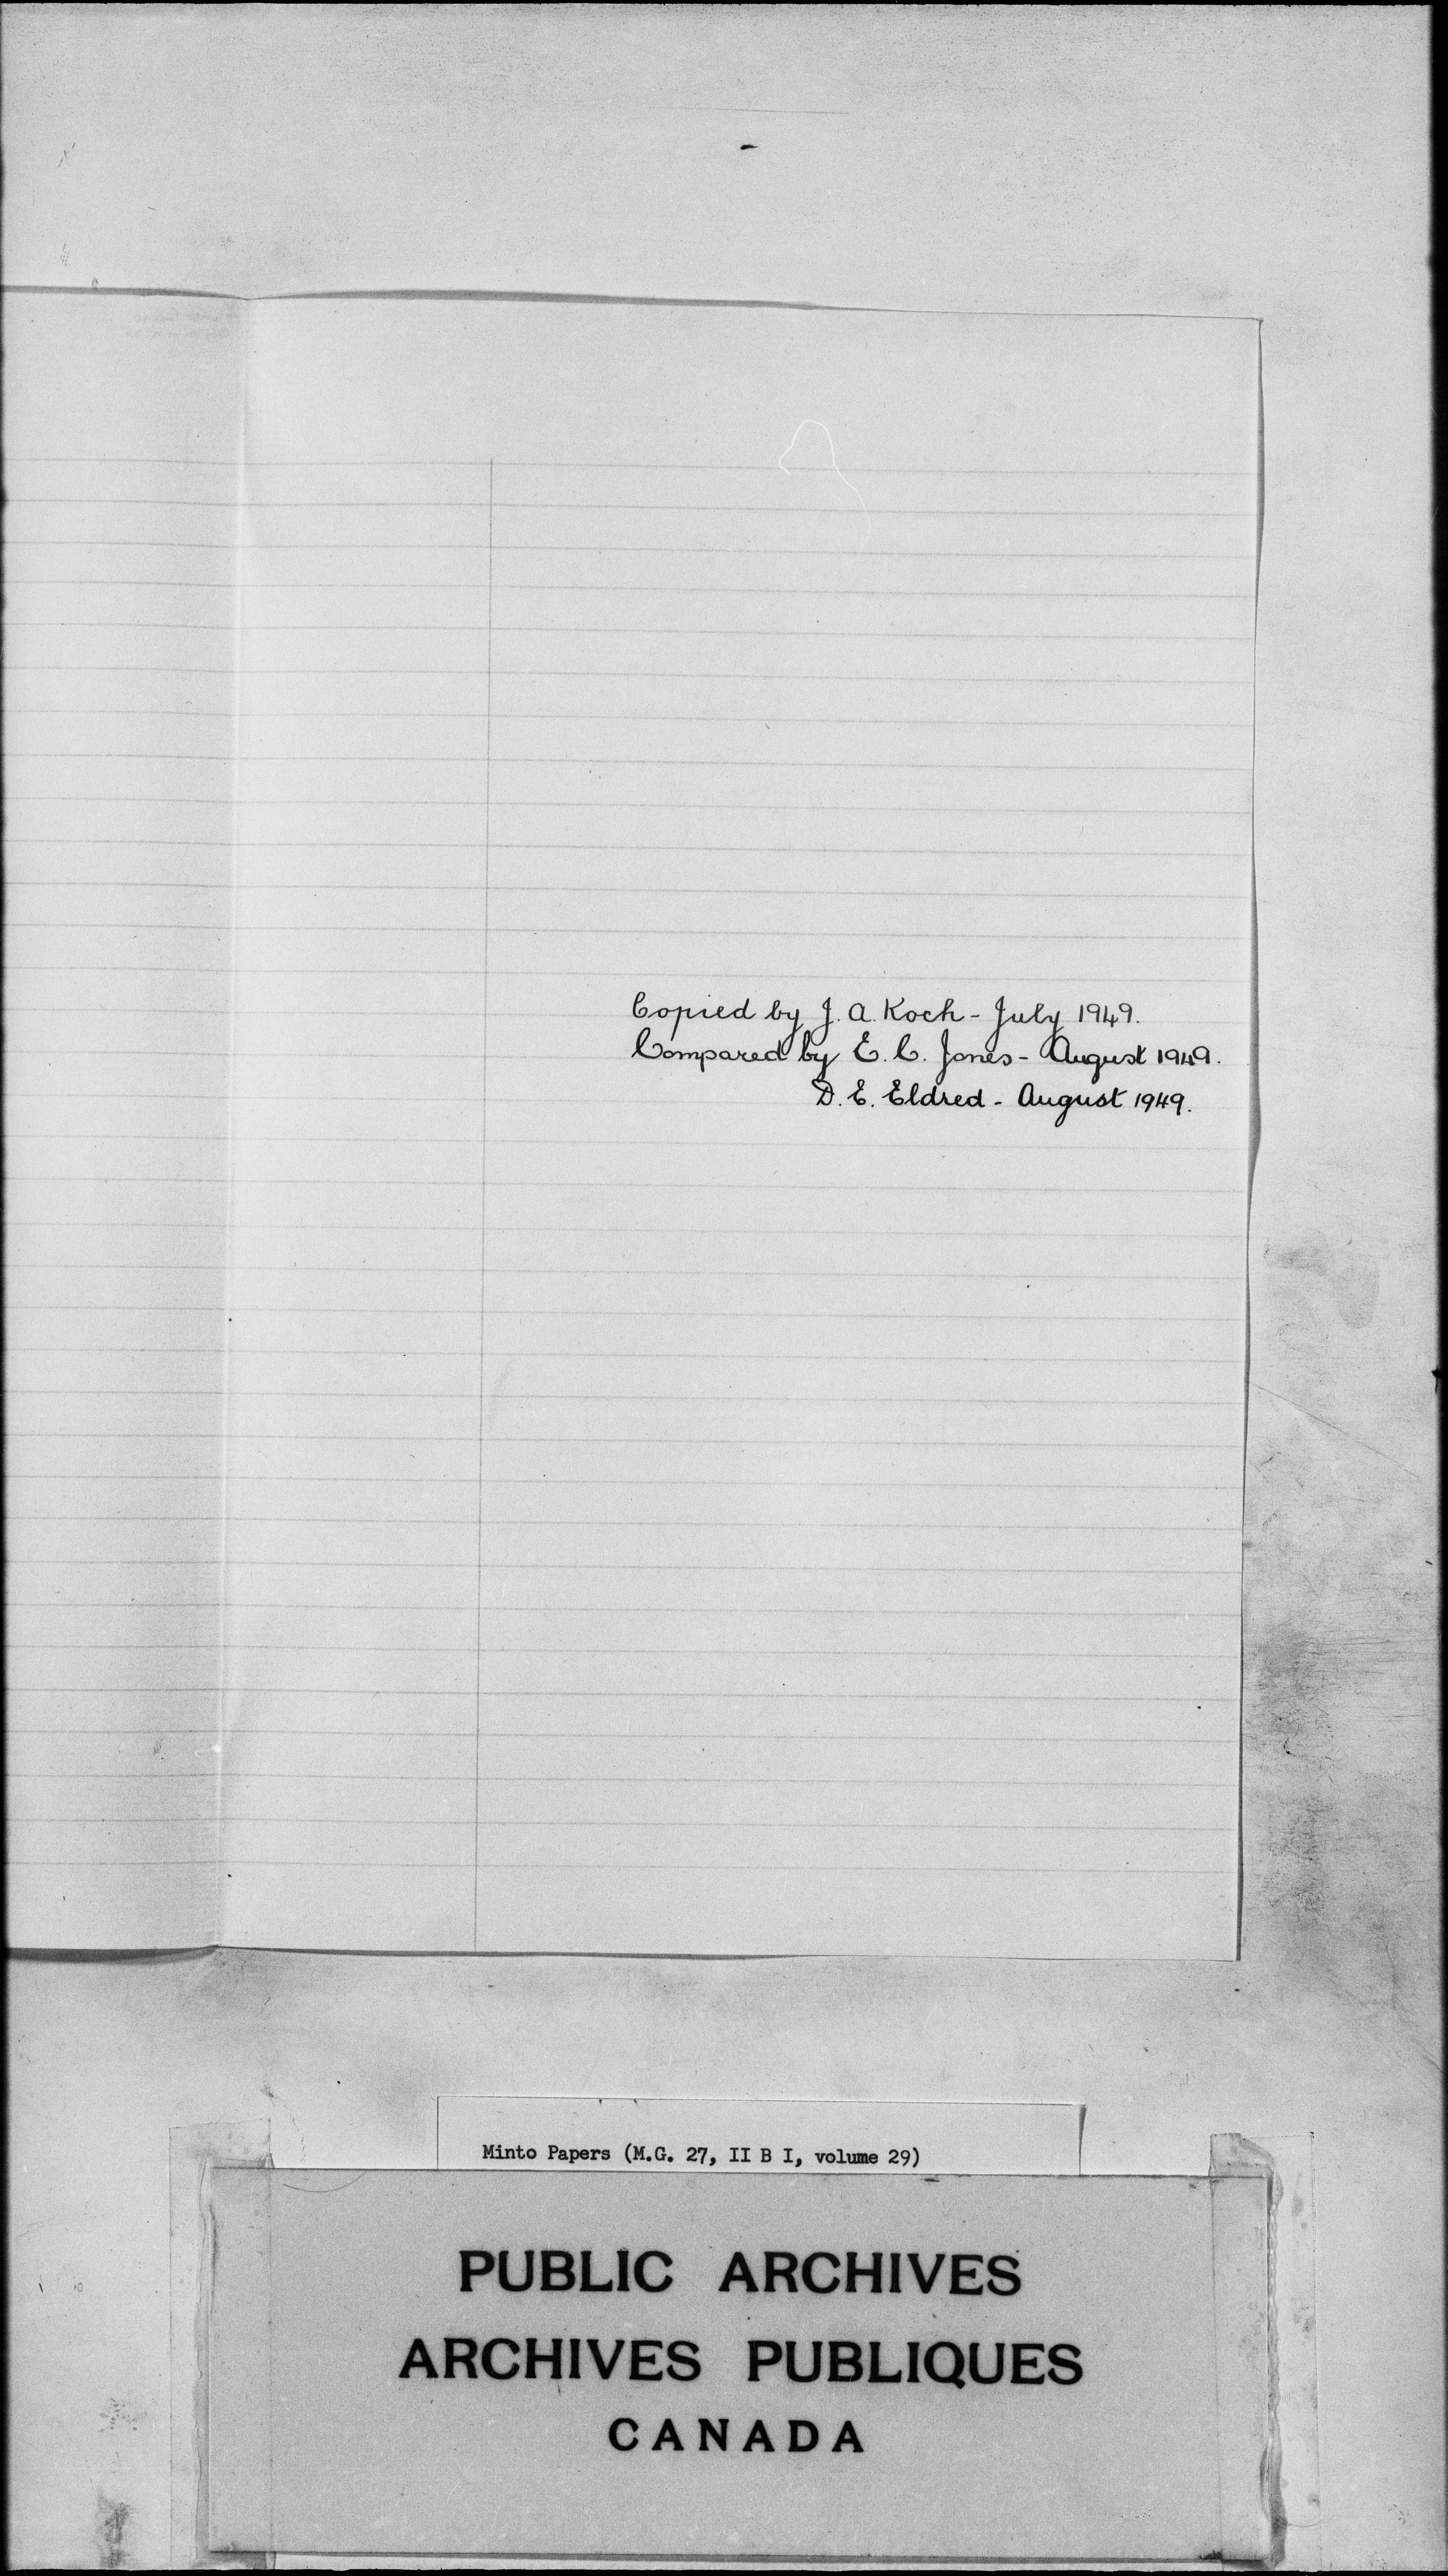 Copied by J. A. Koch - July 1949.
Compared by E. C. Jones - August 1949.
D. E. Eldred - August 1949.
Minto Papers (M.G. 27, II B I, volume 29)
PUBLIC ARCHIVES
ARCHIVES PUBLIQUES
CANADA